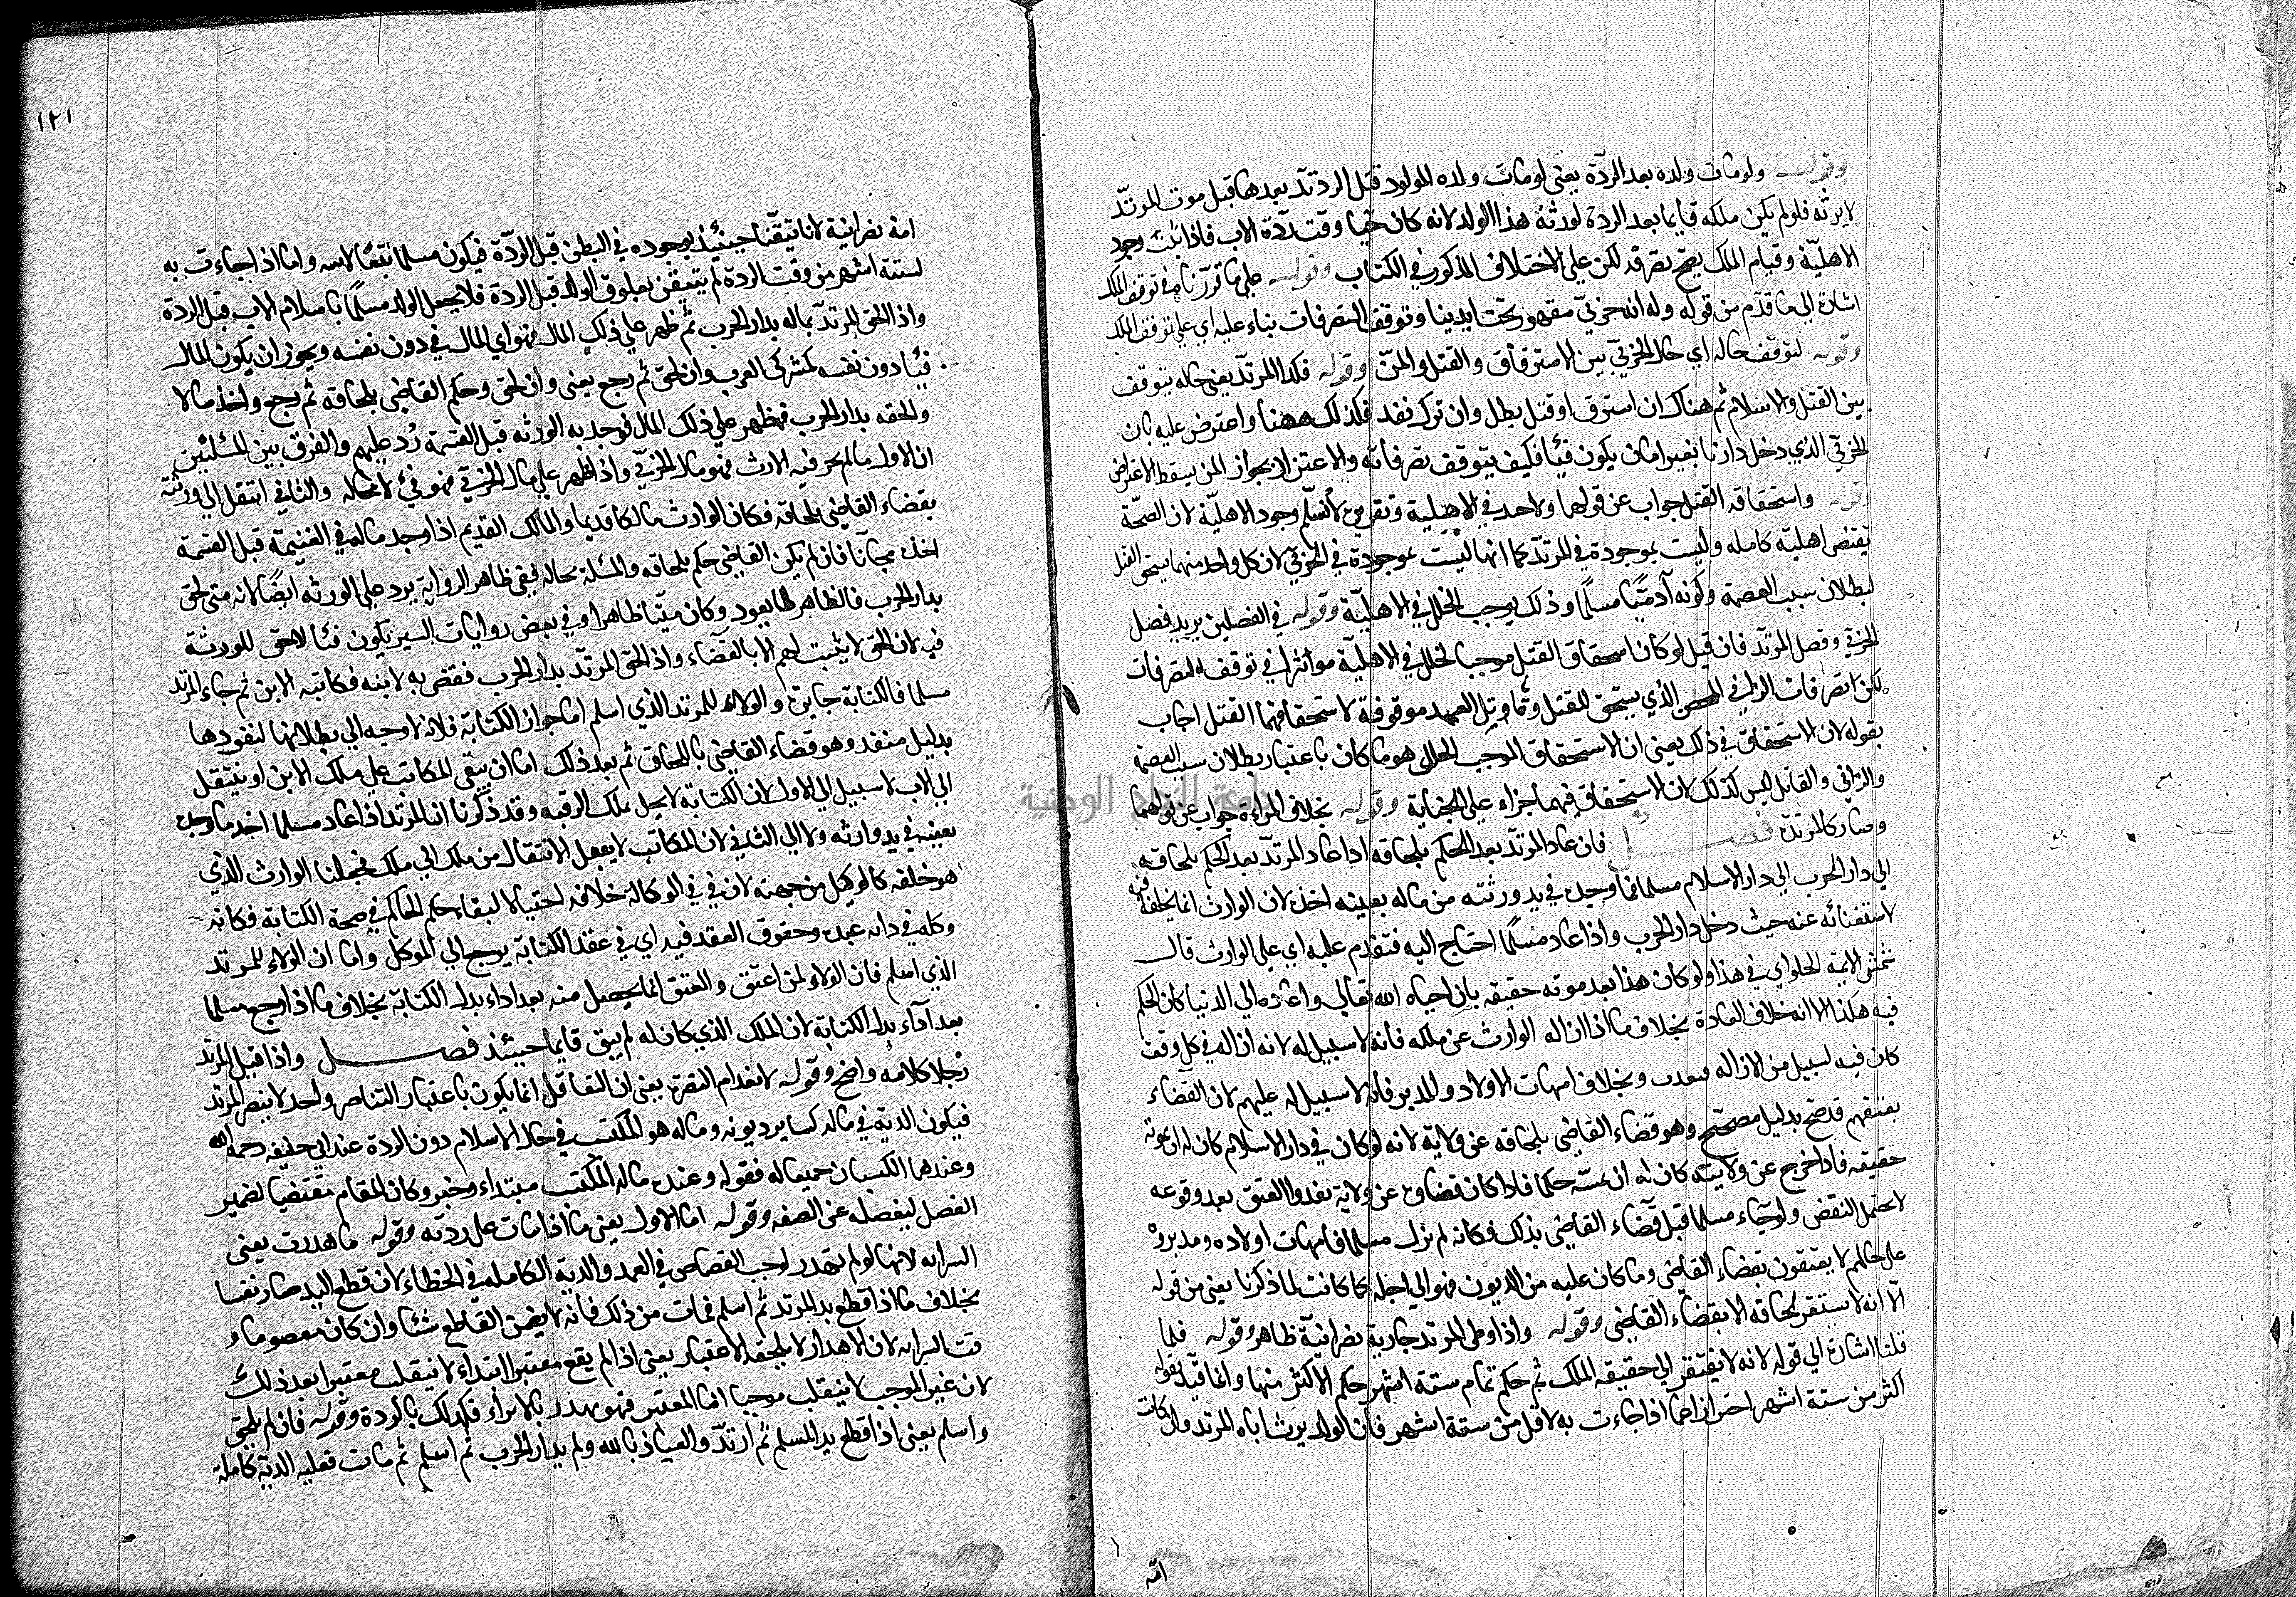 وقوله ولومات ولده بعد الردة يعنى لومات ولده المولود قبل الردة بعدها قبل موت المرتد
لا يرثه فلولم يكن ملكه قايما بعد الردة لورثه هذا الولد لانه كان حيا وقت ردة الاب فاذا ثبت وجود
الاهلية وقيام الملك يصح تصرفه لكن على الاختلاف المذكور في الكتاب وقوله على ما قررناه في توقف الملك
اشارة الى ما قدم من قوله وله انه حربي مقهور تحت ايدينا وتوقف التصرفات بناء عليه اي على توقف الملك
وقوله لتوقف حاله اي حال الحربي بين الاسترقاق والقتل والمن وقوله فكذا المرتد يعنى حاله يتوقف
بين القتل والاسلام ثم هناك ان استرق او قتل بطل وان ترك نفد فكذلك ههنا واعترض عليه بان
الحربي الذي دخل دارنا بغير امان يكون فيئا فكيف يتوقف تصرفاته والاعتذار بجواز المن يسقط الاعتراض
وقوله واستحقاقه القتل جواب عن قولهما ولاحد في الاهلية وتقريره لا نسلم وجود الاهلية لان الصحة
تقتضى اهلية كامله وليست بموجودة في المرتد كما انها ليست بموجودة في الحربي لان كل واحد منهما يستحق القتل
لبطلان سبب العصمة وكونه آدميا مسلما وذلك يوجب الخلل في الاهلية وقوله في الفصلين يريد فصل
الحربي وفصل المرتد فان قيل لو كان استحقاق القتل موجبا لخلل في الاهلية مؤثرا في توقف التصرفات
لكن تصرفات الزاني المحصن الذي يستحق القتل وقاتل العمد موقوفة لاستحقاقهما القتل اجاب
بقوله لان الاستحقاق في ذلك يعنى ان الاستحقاق الموجب للخلل هو ما كان باعتبار بطلان سبب العصمة
والزاني والقاتل ليس كذلك لان الاستحقاق فيهما جزاء على الجناية وقوله بخلاف المراة جواب عن قولهما
وصار كالمرتدة فصل فان عاد المرتد بعد الحكم بلحاقه اذا عاد المرتد بعد الحكم بلحاقه
الى دار الحرب الى دار الاسلام مسلما فما وجده في يد ورثته من ماله بعينه اخذه لان الوارث انما يخلفه فيه
لاستغنائه عنه حيث دخل دار الحرب واذا عاد مسلما احتاج اليه فتقدم عليه اي على الوارث قال
شمس الايمة الحلواي في هذا ولو كان هذا بعد موته حقيقه بان احياه الله تعالى واعاده الى الدنيا كان الحكم
فيه هكذا الا انه خلاف العادة بخلاف ما اذا ازاله الوارث عن ملكه فانه لا سبيل له لانه ازاله في كل وقت
كان فيه لسبيل من الازاله وبخلاف امهات الاولاد والمدبر فانه لا سبيل له عليهم لان القضاء
بعتقهم قد صح بدليل مصحح وهو قضاء القاضي بلحاقه عن ولاية لانه لو كان في دار الاسلام كان له ان يموته
حقيقه فاذا خرج عن ولايته كان له ان يميته حكما فاذا كان قضاؤه عن ولاية نفدوا العتق بعد وقوعه
لا يحتمل النقض ولو جاء مسلما قبل قضاء القاضي بذلك فكانه لم يزل مسلما فامهات اولاده ومدبروه
على حالهم لا يعتقون بقضاء القاضي وما كان عليه من الديون فهو الى اجله كما كانت لما ذكرنا يعنى من قوله
الا انه لا يستقر لحاقه الا بقضاء القاضي وقوله واذا وطى المرتد جارية نصرانية ظاهر وقوله فلما
قلنا اشارة الى قوله لانه لا يفتقر الى حقيقه الملك ثم حكم تمام ستة اشهر حكم الاكثر منها وانما قيد بقوله
اكثر من ستة اشهر احترازا عما اذا جاءت به لاقل من ستة اشهر فان الولد يرث اباه المرتد وان كانت
امه
١٢١
امه نصرانية لانا تيقنا حينئذ بوجوده في البطن قبل الردة فيكون مسلما تبعا لابيه واما اذا جاءت به
لستة اشهر من وقت الردة لم يتيقن بعلوق الولد قبل الردة فلا يجعل الولد مسلما باسلام الاب قبل الردة
واذا لحق المرتد بماله بدار الحرب ثم ظهر على ذلك المال فهو اي المال في دون نفسه ويجوز ان يكون المال
فيئا دون نفسه كمشركى العرب وان لحق ثم رجع يعنى وان لحق وحكم القاضي بلحاقه ثم رجع واخذ مالا
والحقه بدار الحرب فظهر على ذلك المال فوجد به الورثه قبل القسمة رد عليهم والفرق بين المسئلتين
ان الاول مالم يجر فيه الارث فهو مال الحربي واذا ظهر على مال الحربي فهو في لا محاله والثاني انتقل الى ورثته
بقضاء القاضي بلحاقه فكان الوارث مالكا قديما والمالك القديم اذا وجد ماله في الغنيمة قبل القسمة
اخذه مجانا فان لم يكن القاضي حكم بلحاقه والمسئلة بحالها ففي ظاهر الرواية يرد على الورثه ايضا لانه متى لحق
بدار الحرب فالظاهر انه لا يعود وكان ميتا ظاهرا وفي بعض روايات السير يكون فئا لا حق للورثة
فيه لان الحق لا يثبت لهم الا بالقضاء واذا لحق المرتد بدار الحرب فقضى به لابنه فكاتبه الابن ثم جاء المرتد
مسلما فالكتابة جايزة والولاء للمرتد الذي اسلم اما جواز الكتابة فلانه لا وجه الى بطلانها لنفوذها
بدليل منفذ وهو قضاء القاضي باللحاق ثم بعد ذلك اما ان يبقى المكاتب على ملك الابن او ينتقل
الى الاب لا سبيل الى الاول لان الكتابة لا يحل بملك الرقبه وقد ذكرنا ان المرتد اذا عاد مسلما اخذ ما وجده
بعينه في يد وارثه ولا الى الثاني لان المكاتب لا يقبل الانتقال من ملك الى ملك فجعلنا الوارث الذي
هو خلفه كالوكيل من جهته لان في الوكالة خلافه احتيالا لبقاء حكم الحاكم في صحة الكتابة فكانه
وكله في عبده وحقوق العقد فيه اي في عقد الكتابة يرجع الى الموكل واما ان الولاء للمرتد
الذي اسلم فان الولاء لمن اعتق والعتق انما يحصل منه بعد اداء بدل الكتابة بخلاف ما اذا رجع مسلما
بعد آداء بدل الكتابة لان الملك الذي كان له لم يبق قايما حينئذ فصل واذا قتل المرتد
رجلا كلامه واضح وقوله لانعدام النصرة يعنى ان التعاقل انما يكون باعتبار التناصر ولاحد لا ينصر المرتد
فيكون الدية في ماله كساير ديونه وماله هو المكتسب في حال الاسلام دون الردة عند ابي حنيفه رحمه الله
وعندهما الكسبان جميعا له فقوله وعنده ماله المكتسب مبتداء وخبر وكان المقام مقتضيا لضمير
الفصل ليفصله عن الصفه وقوله اما الاول يعنى ما اذا مات على ردته وقوله ما هدرت يعنى
السرايه لانها لو لم تهدر لوجب القصاص في العمد والدية الكامله في الخطاء لان قطع اليد صار نفسا
بخلاف ما اذا قطع يد المرتد ثم اسلم فمات من ذلك فانه لا يضمن القاطع شئا وان كان معصوما و
قت السرايه لان الاهدار لا يلحقه الاعتبار يعنى اذا لم يقع معتبرا ابتداء لا ينقلب معتبرا بعد ذلك
لان غير الموجب لا ينقلب موجبا اما المعتبر فهو يهدر بالابراء فكذلك بالردة وقوله فان لم يلحق
واسلم يعنى اذا قطع يد المسلم ثم ارتد والعياذ بالله ولم بدار الحرب ثم اسلم ثم مات فعليه الدية كاملة